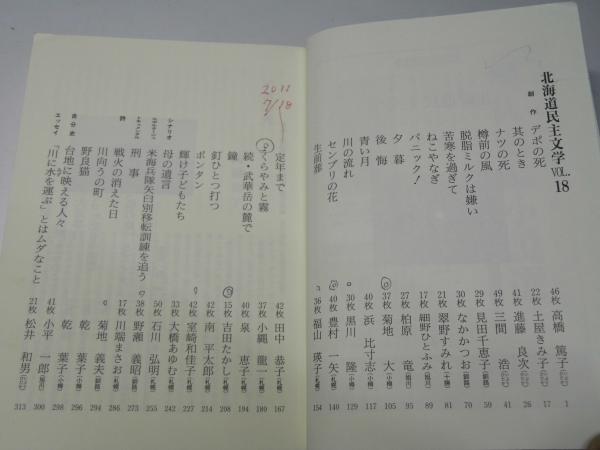 北海道民主文学 VOL.18
創作
デポの死 46枚 高橋 篤子 1
其のとき 22枚 土屋きみ子 17
ナツの死 41枚 進藤 良次 26
樽前の風 49枚 三間 浩 41
脱脂ミルクは嫌い 29枚 見田千恵子 59
苦寒を過ぎて 30枚 なかかつお 70
ねこやなぎ 21枚 翠野すみれ 81
パニック! 17枚 細野ひとふみ 89
夕暮 27枚 柏原 竜 95
後悔 37枚 菊地 大 105
青い月 40枚 浜 比寸志 117
川の流れ 30枚 黒川 隆 129
センブリの花 40枚 豊村 一矢 140
生前葬 36枚 福山 瑛子(札幌) 154
2011 7/18
定年まで 42枚 田中 恭子(札幌) 167
くらやみと霧 37枚 小縄 龍一 180
続・武華岳の麓で 40枚 泉 恵子 194
鐘 15枚 吉田たかし 208
釘ひとつ打つ 42枚 南 平太郎 214
ポンタン 42枚 室崎和佳子 227
輝け子どもたち 33枚 大橋あゆむ 242
シナリオ
母の遺言 50枚 石川 弘明 255
米海兵隊矢臼別移転訓練を追う 38枚 野瀬 義昭 273
詩
刑事 17枚 川端まさお 286
戦火の消えた日 菊地 義夫 294
川向うの町 乾 葉子 296
野良猫 乾 葉子 298
自分史
台地に映える人々 41枚 小平 一郎 300
エッセイ
「川に水を運ぶ」とはムダなこと 21枚 松井 和男 313